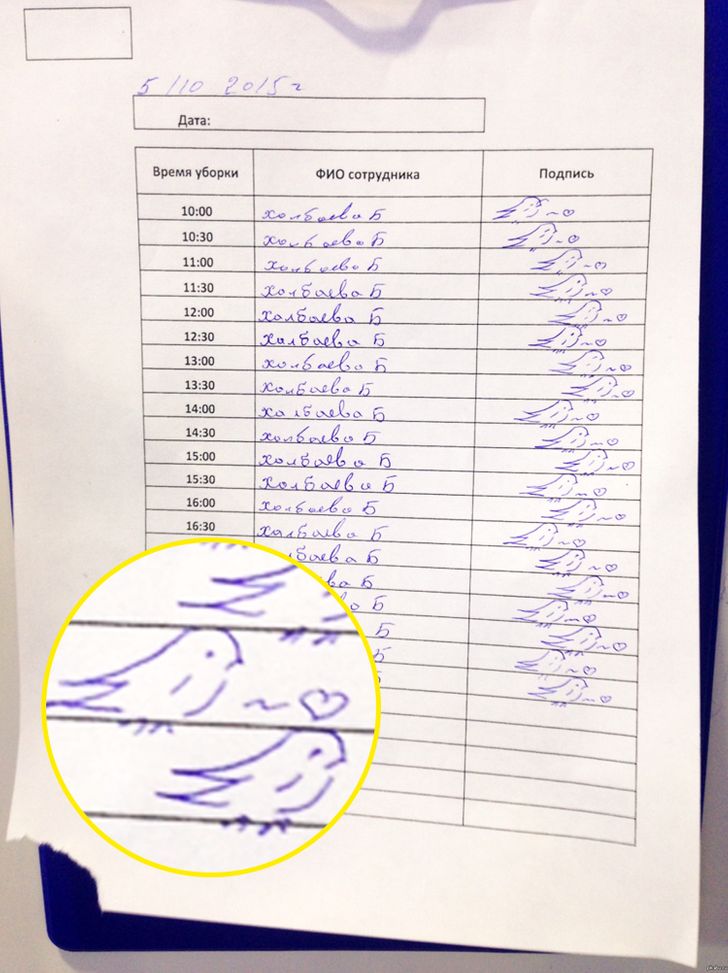 5/10 2015г
Дата:
Время уборки ФИО сотрудника Подпись
10:00 Холбаева Б
10:30 Холбаева Б
11:00 Холбаева Б
11:30 Холбаева Б
12:00 Холбаева Б
12:30 Холбаева Б
13:00 Холбаева Б
13:30 Холбаева Б
14:00 Холбаева Б
14:30 Холбаева Б
15:00 Холбаева Б
15:30 Холбаева Б
16:00 Холбаева Б
16:30 Холбаева Б
лбаева Б
ева Б
Б
Б
Б